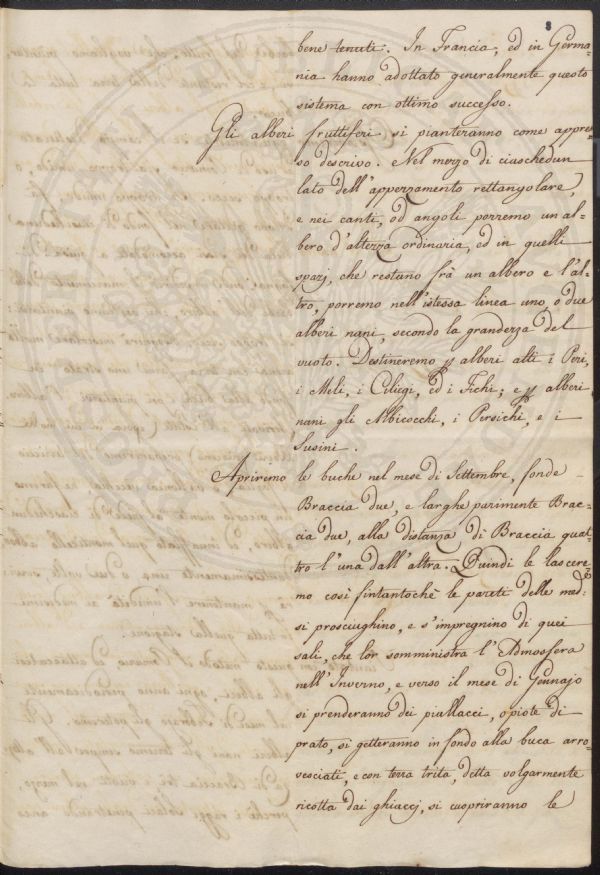 8
bene tenuti. In Francia, ed in Germa=
nia hanno adottato generalmente questo
sistema con ottimo successo.
Gli alberi fruttiferi si pianteranno come appres=
so descrivo. Nel mezzo di ciaschedun
lato dell'appezzamento rettangolare,
e nei canti, od angoli porremo un al=
bero d'altezza ordinaria, ed in quelli
spazj, che restano frà un albero e l'al=
tro, porremo nell'istessa linea uno, o due
alberi nani, secondo la grandezza del
vuoto. Destineremo p alberi alti i Peri,
i Meli, i Ciliegi, ed i Fichi; e p alberi
nani gli Albicocchi, i Persichi, e i
Susini.
Apriremo le buche nel mese di Settembre, fonde
Braccia due, e larghe parimente Brac=
cia due, alla distanza di Braccia quat=
tro l'una dall'altra. Quindi le lascere=
mo così fintantochè le pareti delle med:
si prosciughino, e s'impregnino di quei
sali, che lor somministra l'Atmosfera
nell'Inverno, e verso il mese di Gennajo
si prenderanno dei piallacci, o piote di
prato, si getteranno in fondo alla buca arro=
vesciati, e con terra trita, detta volgarmente
ricotta dai ghiaccj, si cuopriranno le